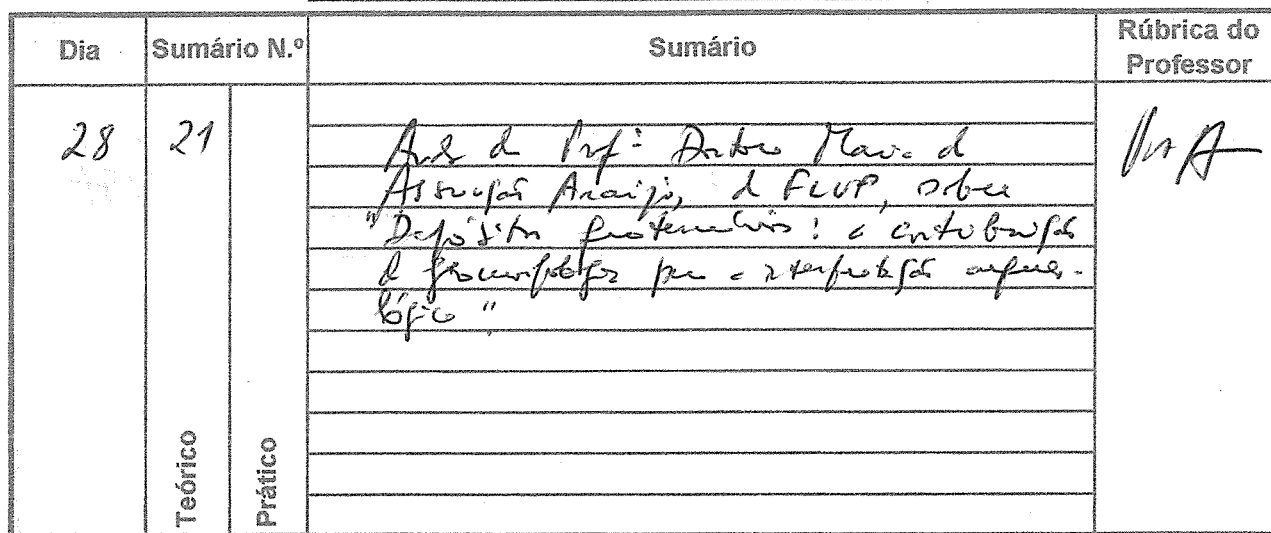 Dia
Sumário N.º
Sumário
Rúbrica do
Professor
28
21
Aula da Profª Doutora Maria da
Assunção Araújo, da FLUP, sobre
"Depósitos quaternários: a contribuição
da geomorfologia para a interpretação arqueo-
lógica".
Teórico
Prático